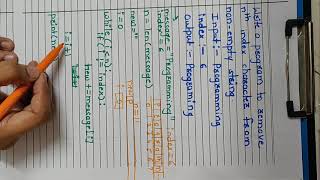 Write a program to remove
nth index character from
non-empty string
Input :- Programming
index :- 6
output :- Programing
message = "Programming"
index = 6
n = len(message)
new = ""
i = 0
while(i < n):
if(i != index):
new += message[i]
i = i+1
index = 6
n = 11